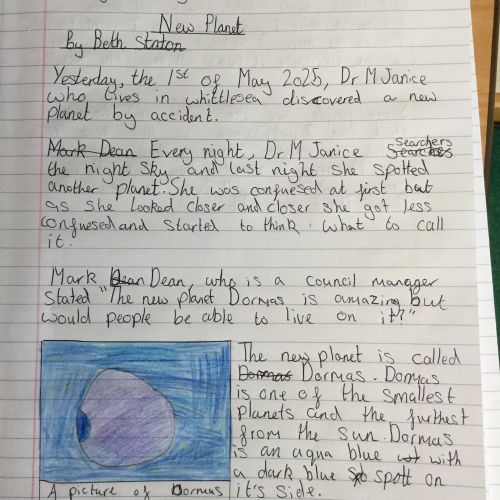 New Planet
By Beth Staton
Yesterday, the 1st of May 2025, Dr M Janice
who lives in whittlesea discovered a new
planet by accident.
Mark Dean Every night, Dr M Janice Searchers
the night sky and last night she spotted
another planet. She was confuesed at first but
as she looked closer and closer she got less
confuesed and started to think what to call
it.
Mark Dean Dean, who is a council manager
stated "The new planet Dormas is amazing but
would people be able to live on it?"
The new planet is called
Dormas Dormas. Dormas
is one of the smallest
planets and the furthest
from the sun. Dormas
is an aqua blue with
a dark blue spott on
it's side.
A picture of Dormus